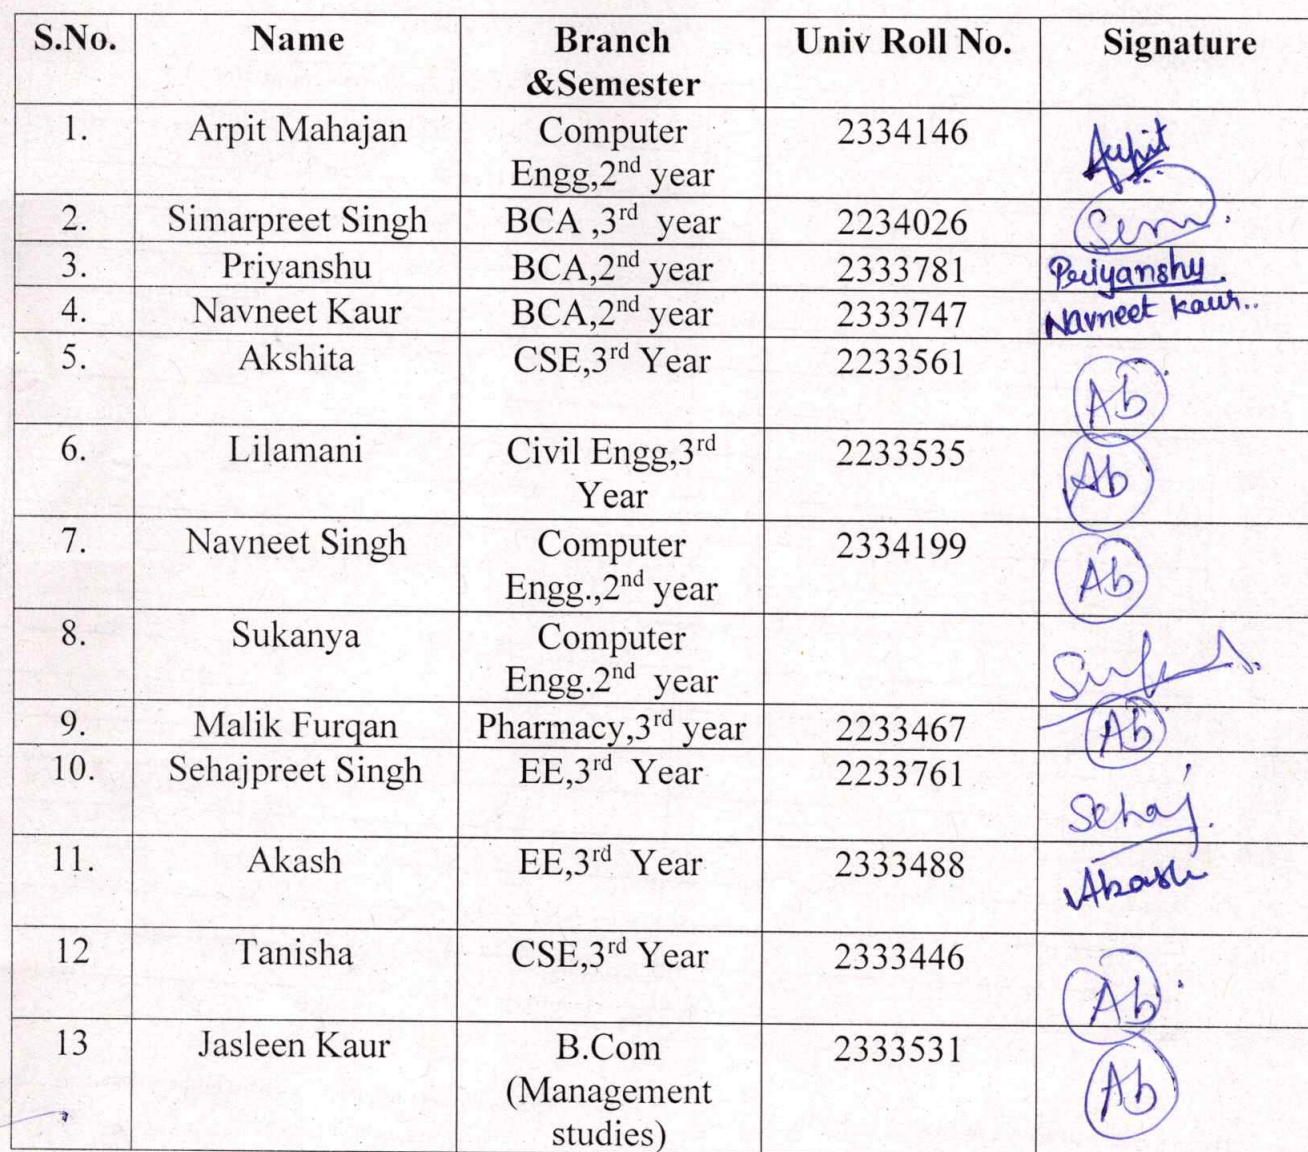 S.No. Name Branch Univ Roll No. Signature
&Semester
1. Arpit Mahajan Computer 2334146 Arpit
Engg,2nd year
2. Simarpreet Singh BCA ,3rd year 2234026
3. Priyanshu BCA,2nd year 2333781 Priyanshu
4. Navneet Kaur BCA,2nd year 2333747 Navneet kaur..
5. Akshita CSE,3rd Year 2233561 Ab
6. Lilamani Civil Engg,3rd 2233535 Ab
Year
7. Navneet Singh Computer 2334199 Ab
Engg.,2nd year
8. Sukanya Computer
Engg.2nd year
9. Malik Furqan Pharmacy,3rd year 2233467 Ab
10. Sehajpreet Singh EE,3rd Year 2233761 Sehaj.
11. Akash EE,3rd Year 2333488 Akash
12 Tanisha CSE,3rd Year 2333446 Ab
13 Jasleen Kaur B.Com 2333531 Ab
(Management
studies)